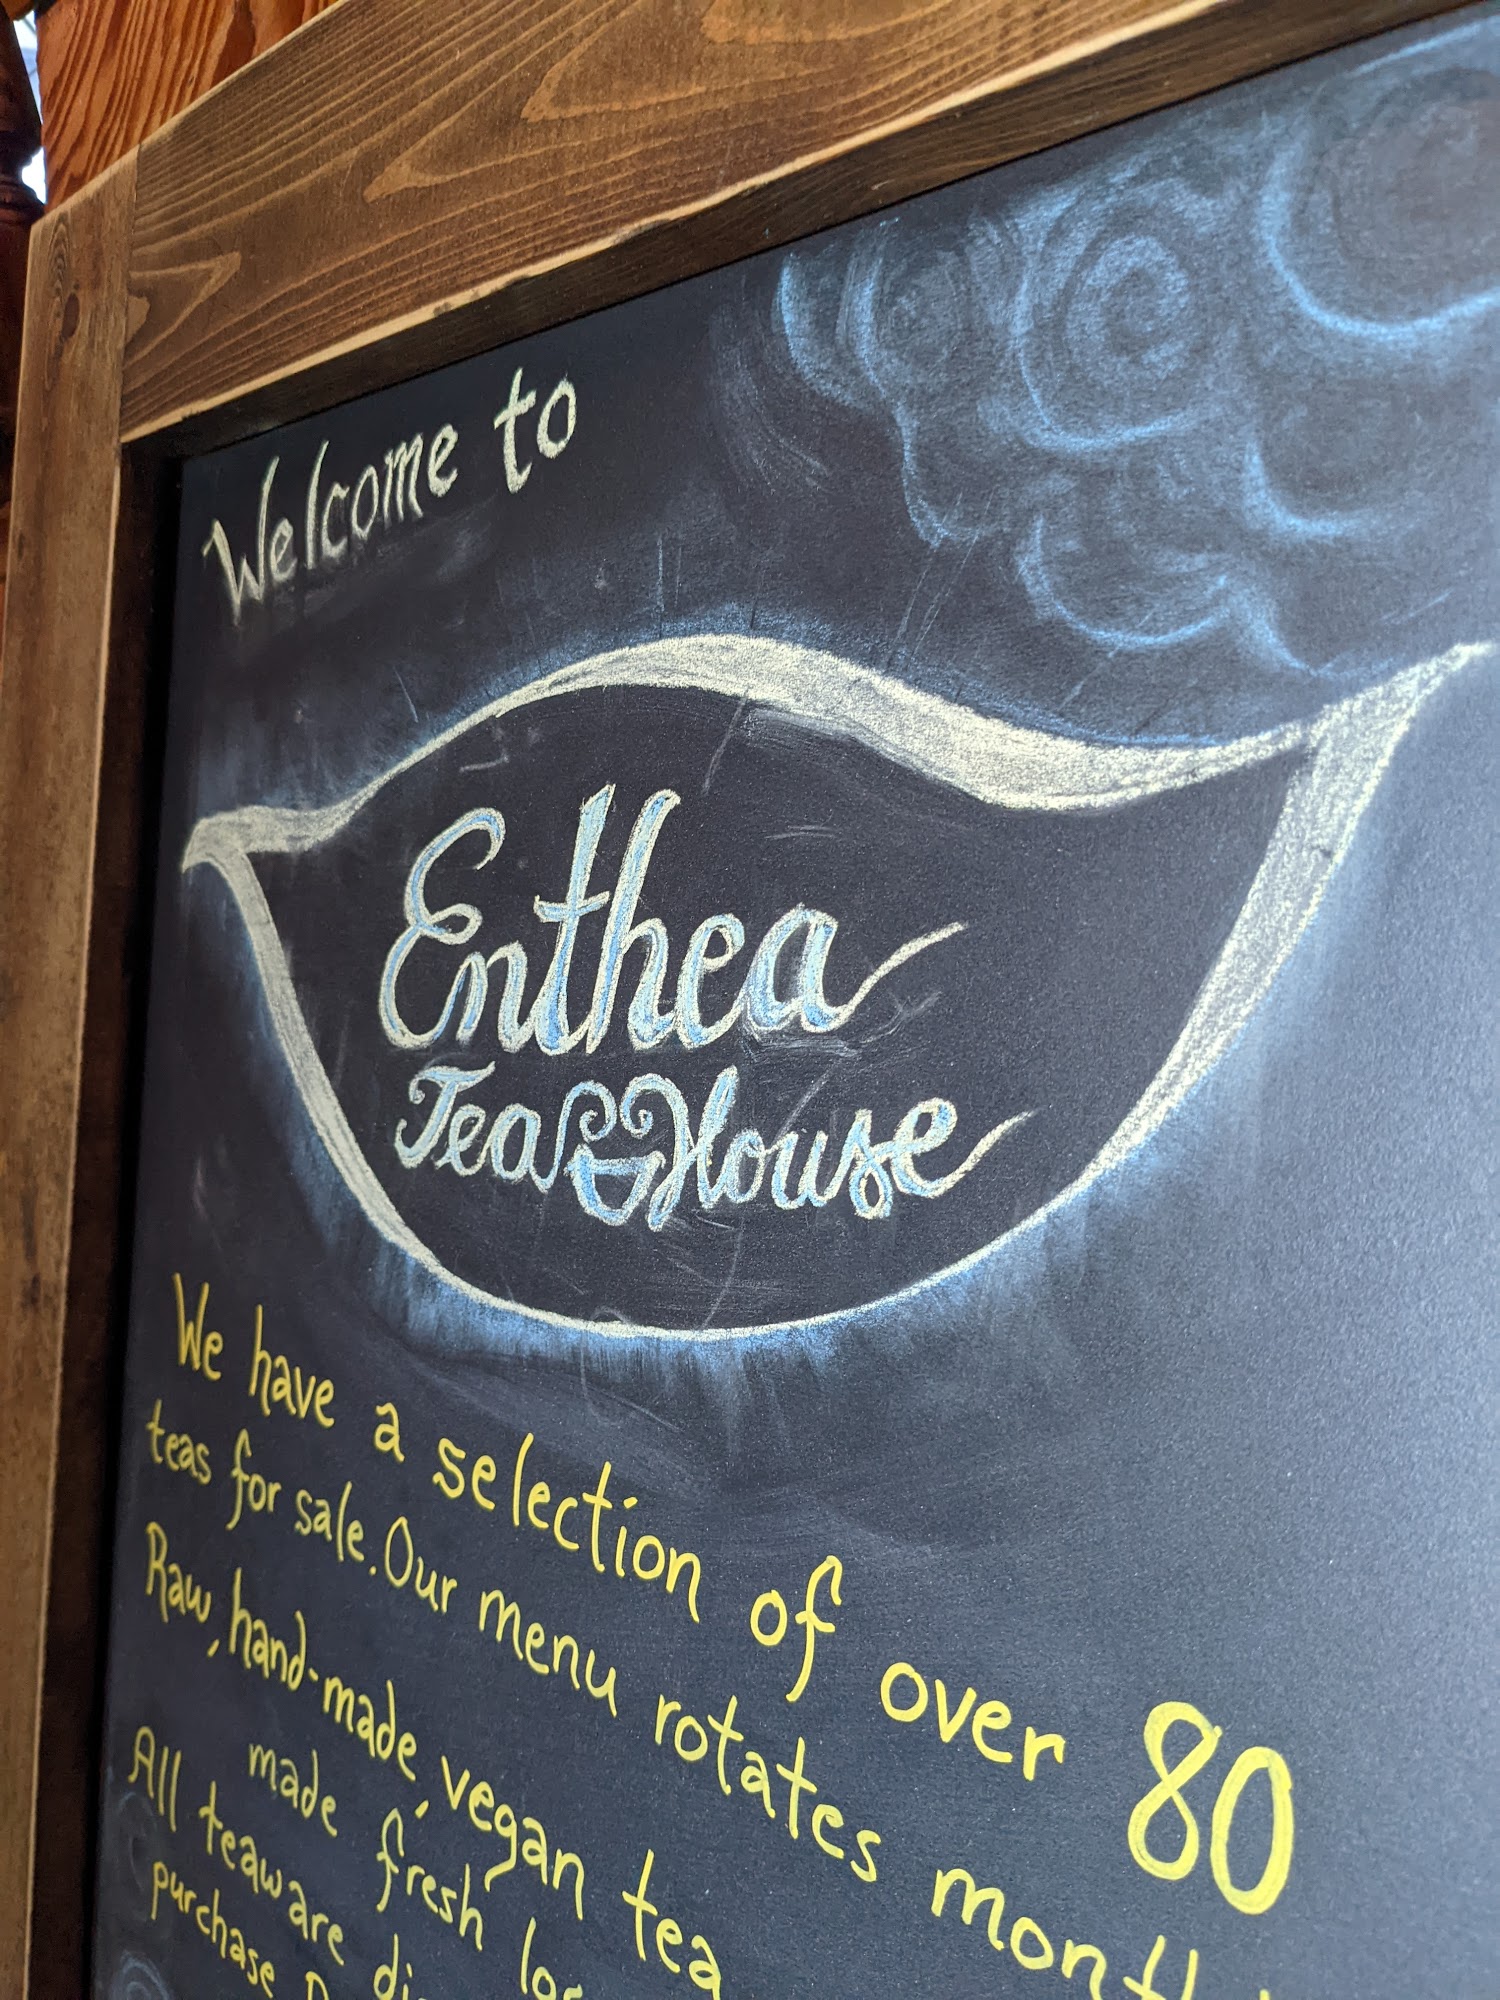 Welcome to
Enthea
Tea House
We have a selection of over 80
teas for sale. Our menu rotates
Raw, hand-made, vegan tea
made fresh
All teaware
purchase